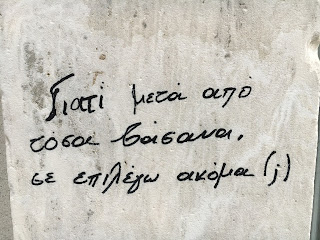 Γιατί μετά από
τόσα βάσανα,
σε επιλέγω ακόμα (;)